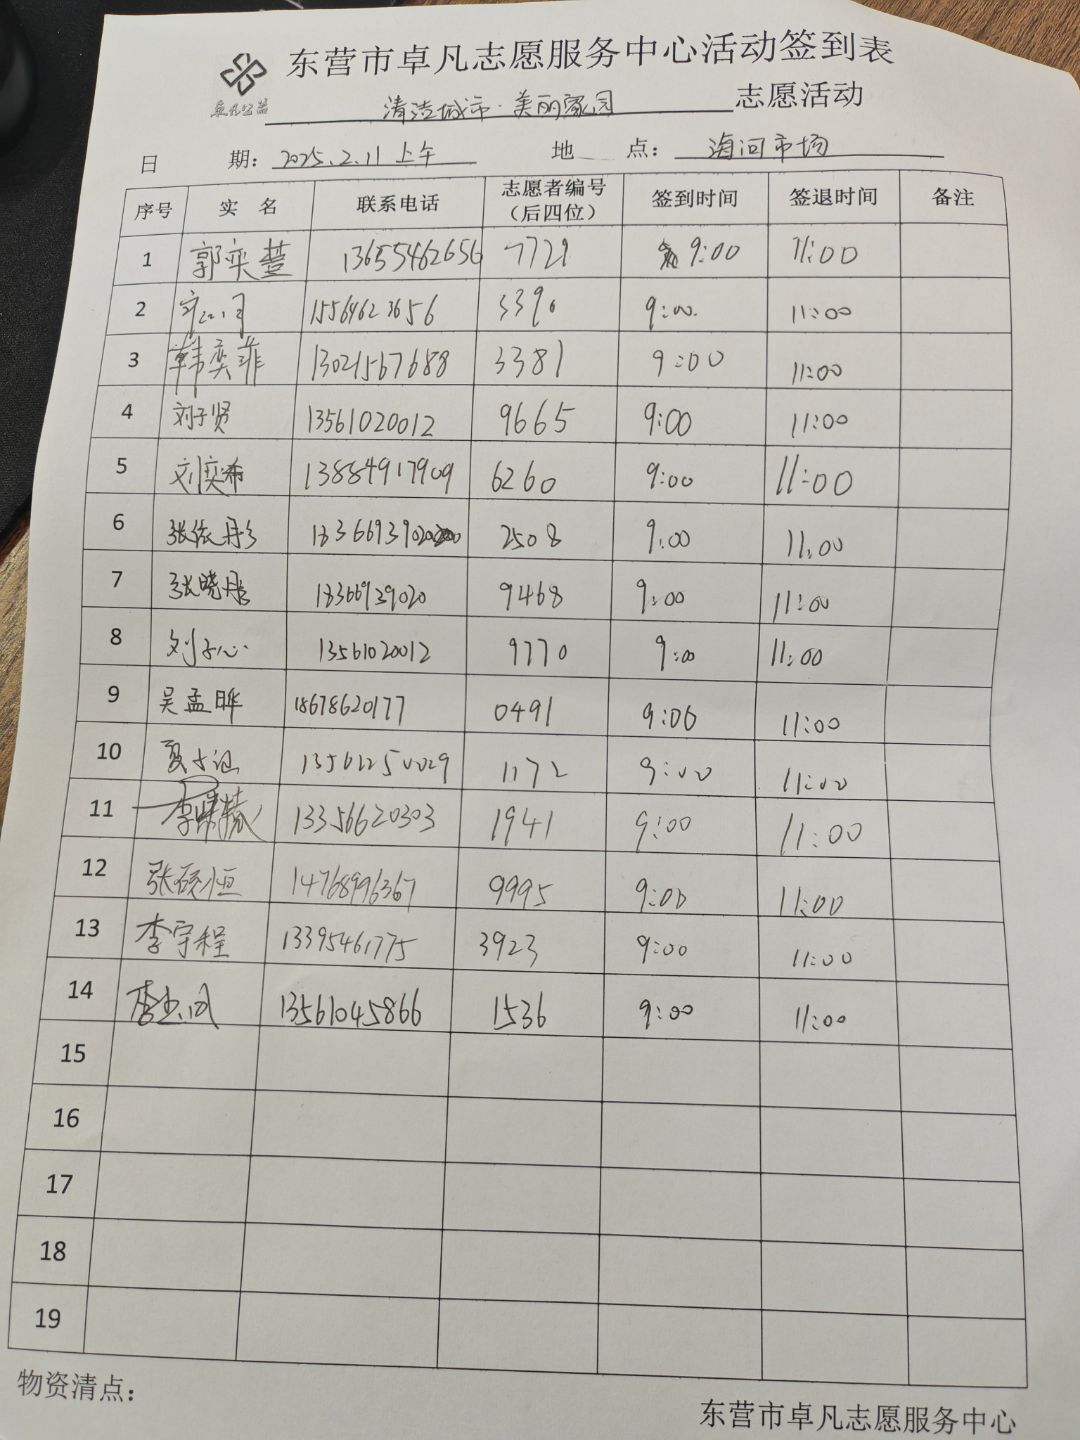 东营市卓凡志愿服务中心活动签到表
卓凡公益
清洁城市·美丽家园 志愿活动
日 期: 2025.2.11 上午 地 点: 海河市场
序号 实 名 联系电话 志愿者编号（后四位） 签到时间 签退时间 备注
1 郭奕楚 13655462656 7721 9:00 11:00
2 15564623656 3390 9:00 11:00
3 韩奕菲 13021567688 3381 9:00 11:00
4 刘子贤 13561020012 9665 9:00 11:00
5 刘奕希 13884917909 6260 9:00 11:00
6 张依彤 18366939020 2508 9:00 11:00
7 张晓彤 18366939020 9468 9:00 11:00
8 刘子心 13561020012 9770 9:00 11:00
9 吴孟晔 18678620177 0491 9:00 11:00
10 1172 9:00 11:00
11 13356620303 1941 9:00 11:00
12 张硕恒 14768996367 9995 9:00 11:00
13 李宇程 13395461775 3923 9:00 11:00
14 13561045866 1536 9:00 11:00
15
16
17
18
19
物资清点:
东营市卓凡志愿服务中心